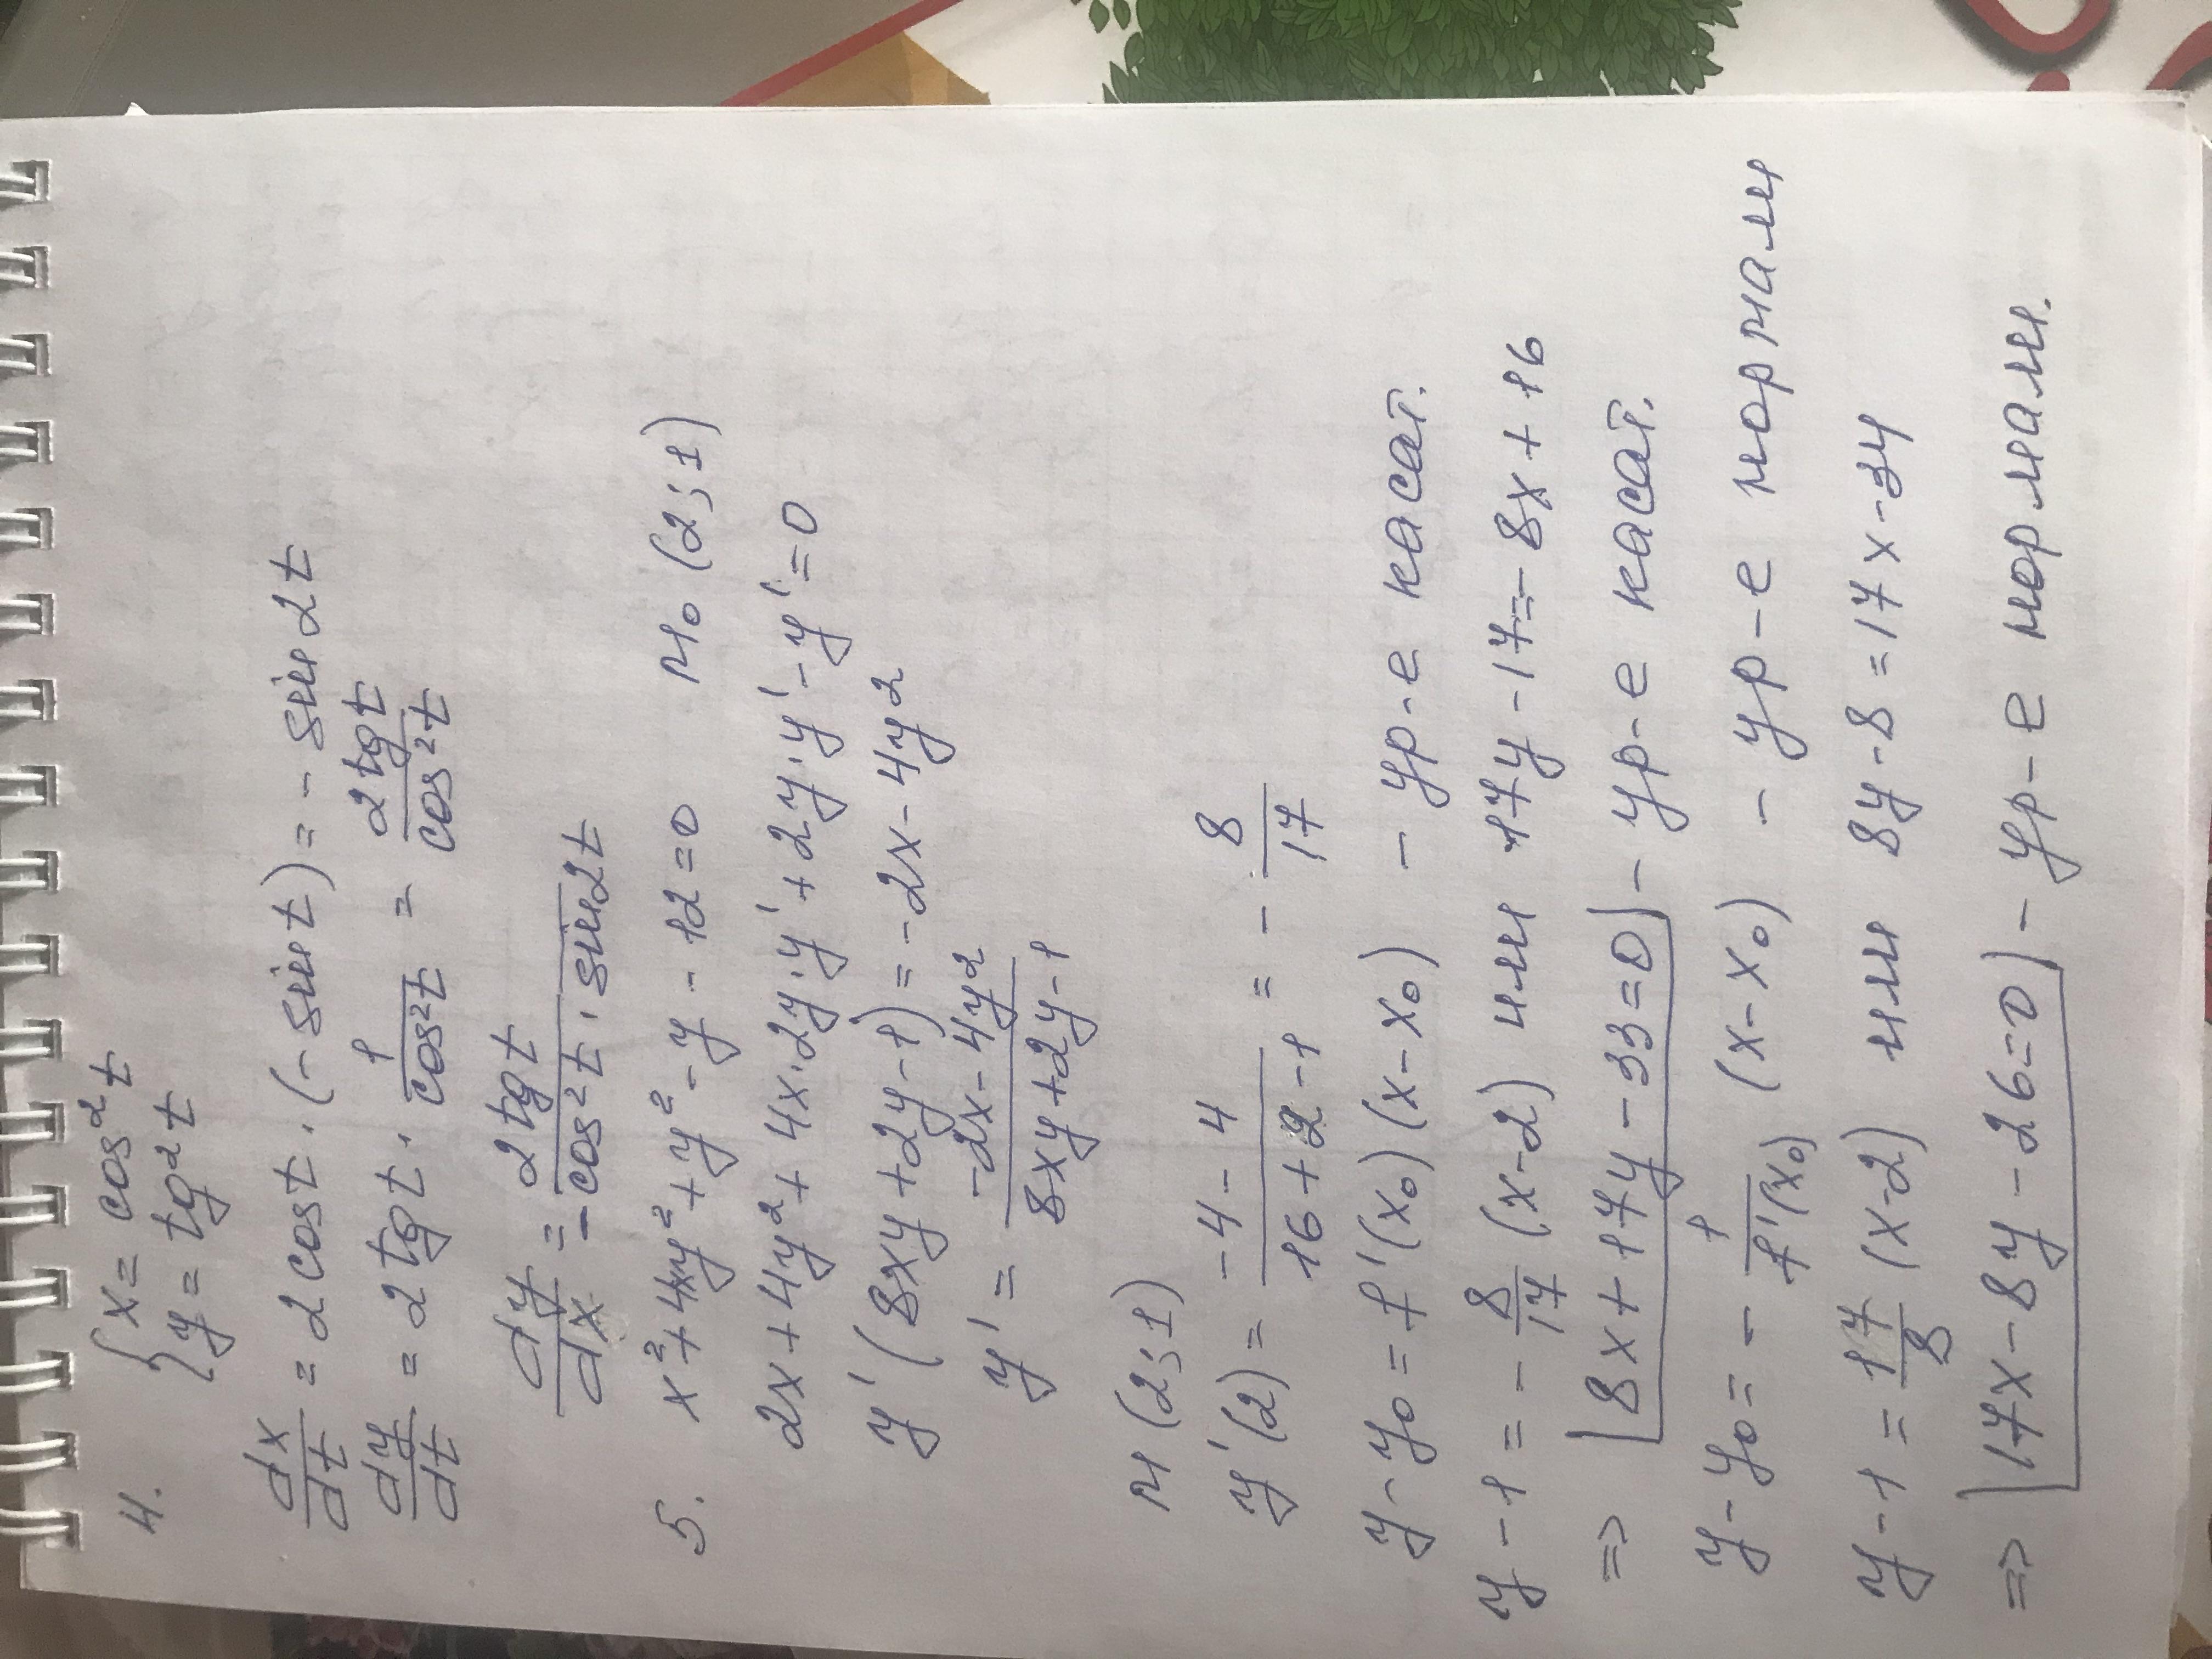 4. { x = cos²t
{ y = tg²t
dx/dt = 2 cos t · (- sin t) = - sin 2t
dy/dt = 2 tg t · 1/cos²t = 2 tg t/cos²t
dy/dx = 2 tg t/- cos²t · sin 2t
5. x² + 4xy² + y² - y - 12 = 0 M₀ (2; 1)
2x + 4y² + 4x · 2y · y' + 2y · y' - y' = 0
y' (8xy + 2y - 1) = - 2x - 4y²
y' = -2x - 4y²/8xy + 2y - 1
M (2; 1)
y'(2) = -4 - 4/16 + 2 - 1 = - 8/17
y - y₀ = f'(x₀) (x - x₀) - ур-е касат.
y - 1 = - 8/17 (x - 2) или 17y - 17 = - 8x + 16
=> 8x + 17y - 33 = 0 - ур-е касат.
y - y₀ = - 1/f'(x₀) (x - x₀) - ур-е нормали
y - 1 = 17/8 (x - 2) или 8y - 8 = 17x - 34
=> 17x - 8y - 26 = 0 - ур-е нормали.